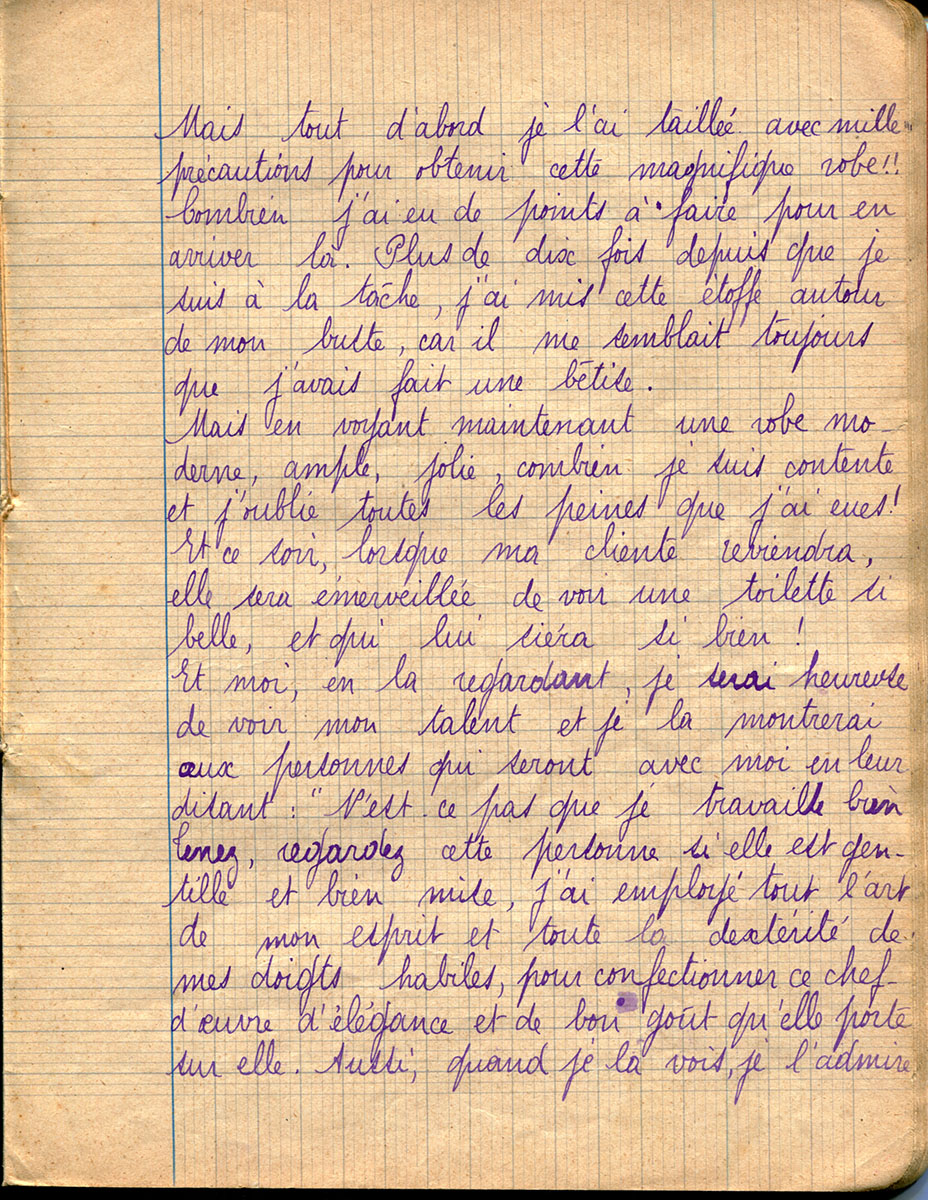 Mais tout d'abord je l'ai taillée avec mille
précautions pour obtenir cette magnifique robe!!
Combien j'ai eu de points à faire pour en
arriver là. Plus de dix fois depuis que je
suis à la tâche, j'ai mis cette étoffe autour
de mon buste, car il me semblait toujours
que j'avais fait une bêtise.
Mais en voyant maintenant une robe mo-
derne, ample, jolie, combien je suis contente
et j'oublie toutes les peines que j'ai eues!
Et ce soir, lorsque ma cliente reviendra,
elle sera émerveillée de voir une toilette si
belle, et qui lui siéra si bien !
Et moi, en la regardant, je serai heureuse
de voir mon talent et je la montrerai
aux personnes qui seront avec moi en leur
disant : "N'est-ce pas que je travaille bien
Tenez, regardez cette personne si elle est gen-
tille et bien mise, j'ai employé tout l'art
de mon esprit et toute la dextérité de
mes doigts habiles, pour confectionner ce chef-
d'œuvre d'élégance et de bon goût qu'elle porte
sur elle. Aussi, quand je la vois, je l'admire